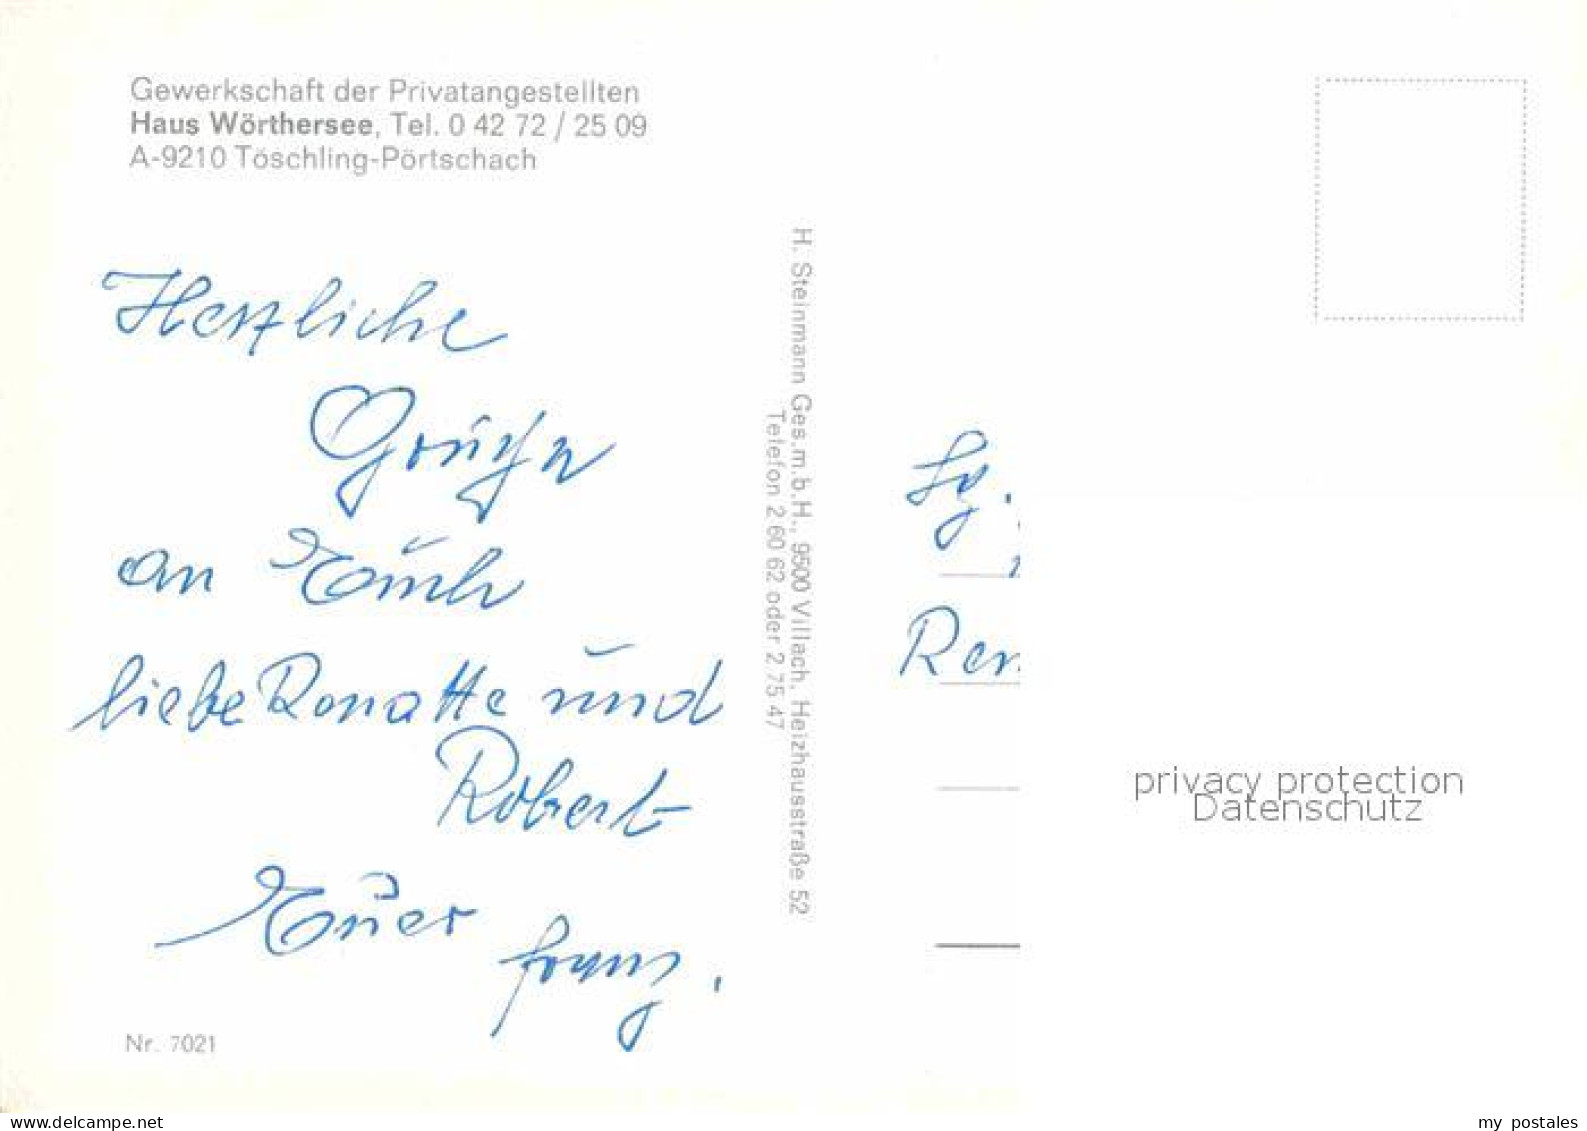 Gewerkschaft der Privatangestellten
Haus Wörthersee, Tel. 0 42 72 / 25 09
A-9210 Töschling-Pörtschach
Herzliche
Grüße
an Euch
liebe Renatte und
Robert
Euer Franz.
Nr. 7021
H. Steinmann Ges.m.b.H., 9500 Villach, Heizhausstraße 52
Telefon 2 60 62 oder 2 75 47
Ren
privacy protection
Datenschutz
delcampe.net
my_postales